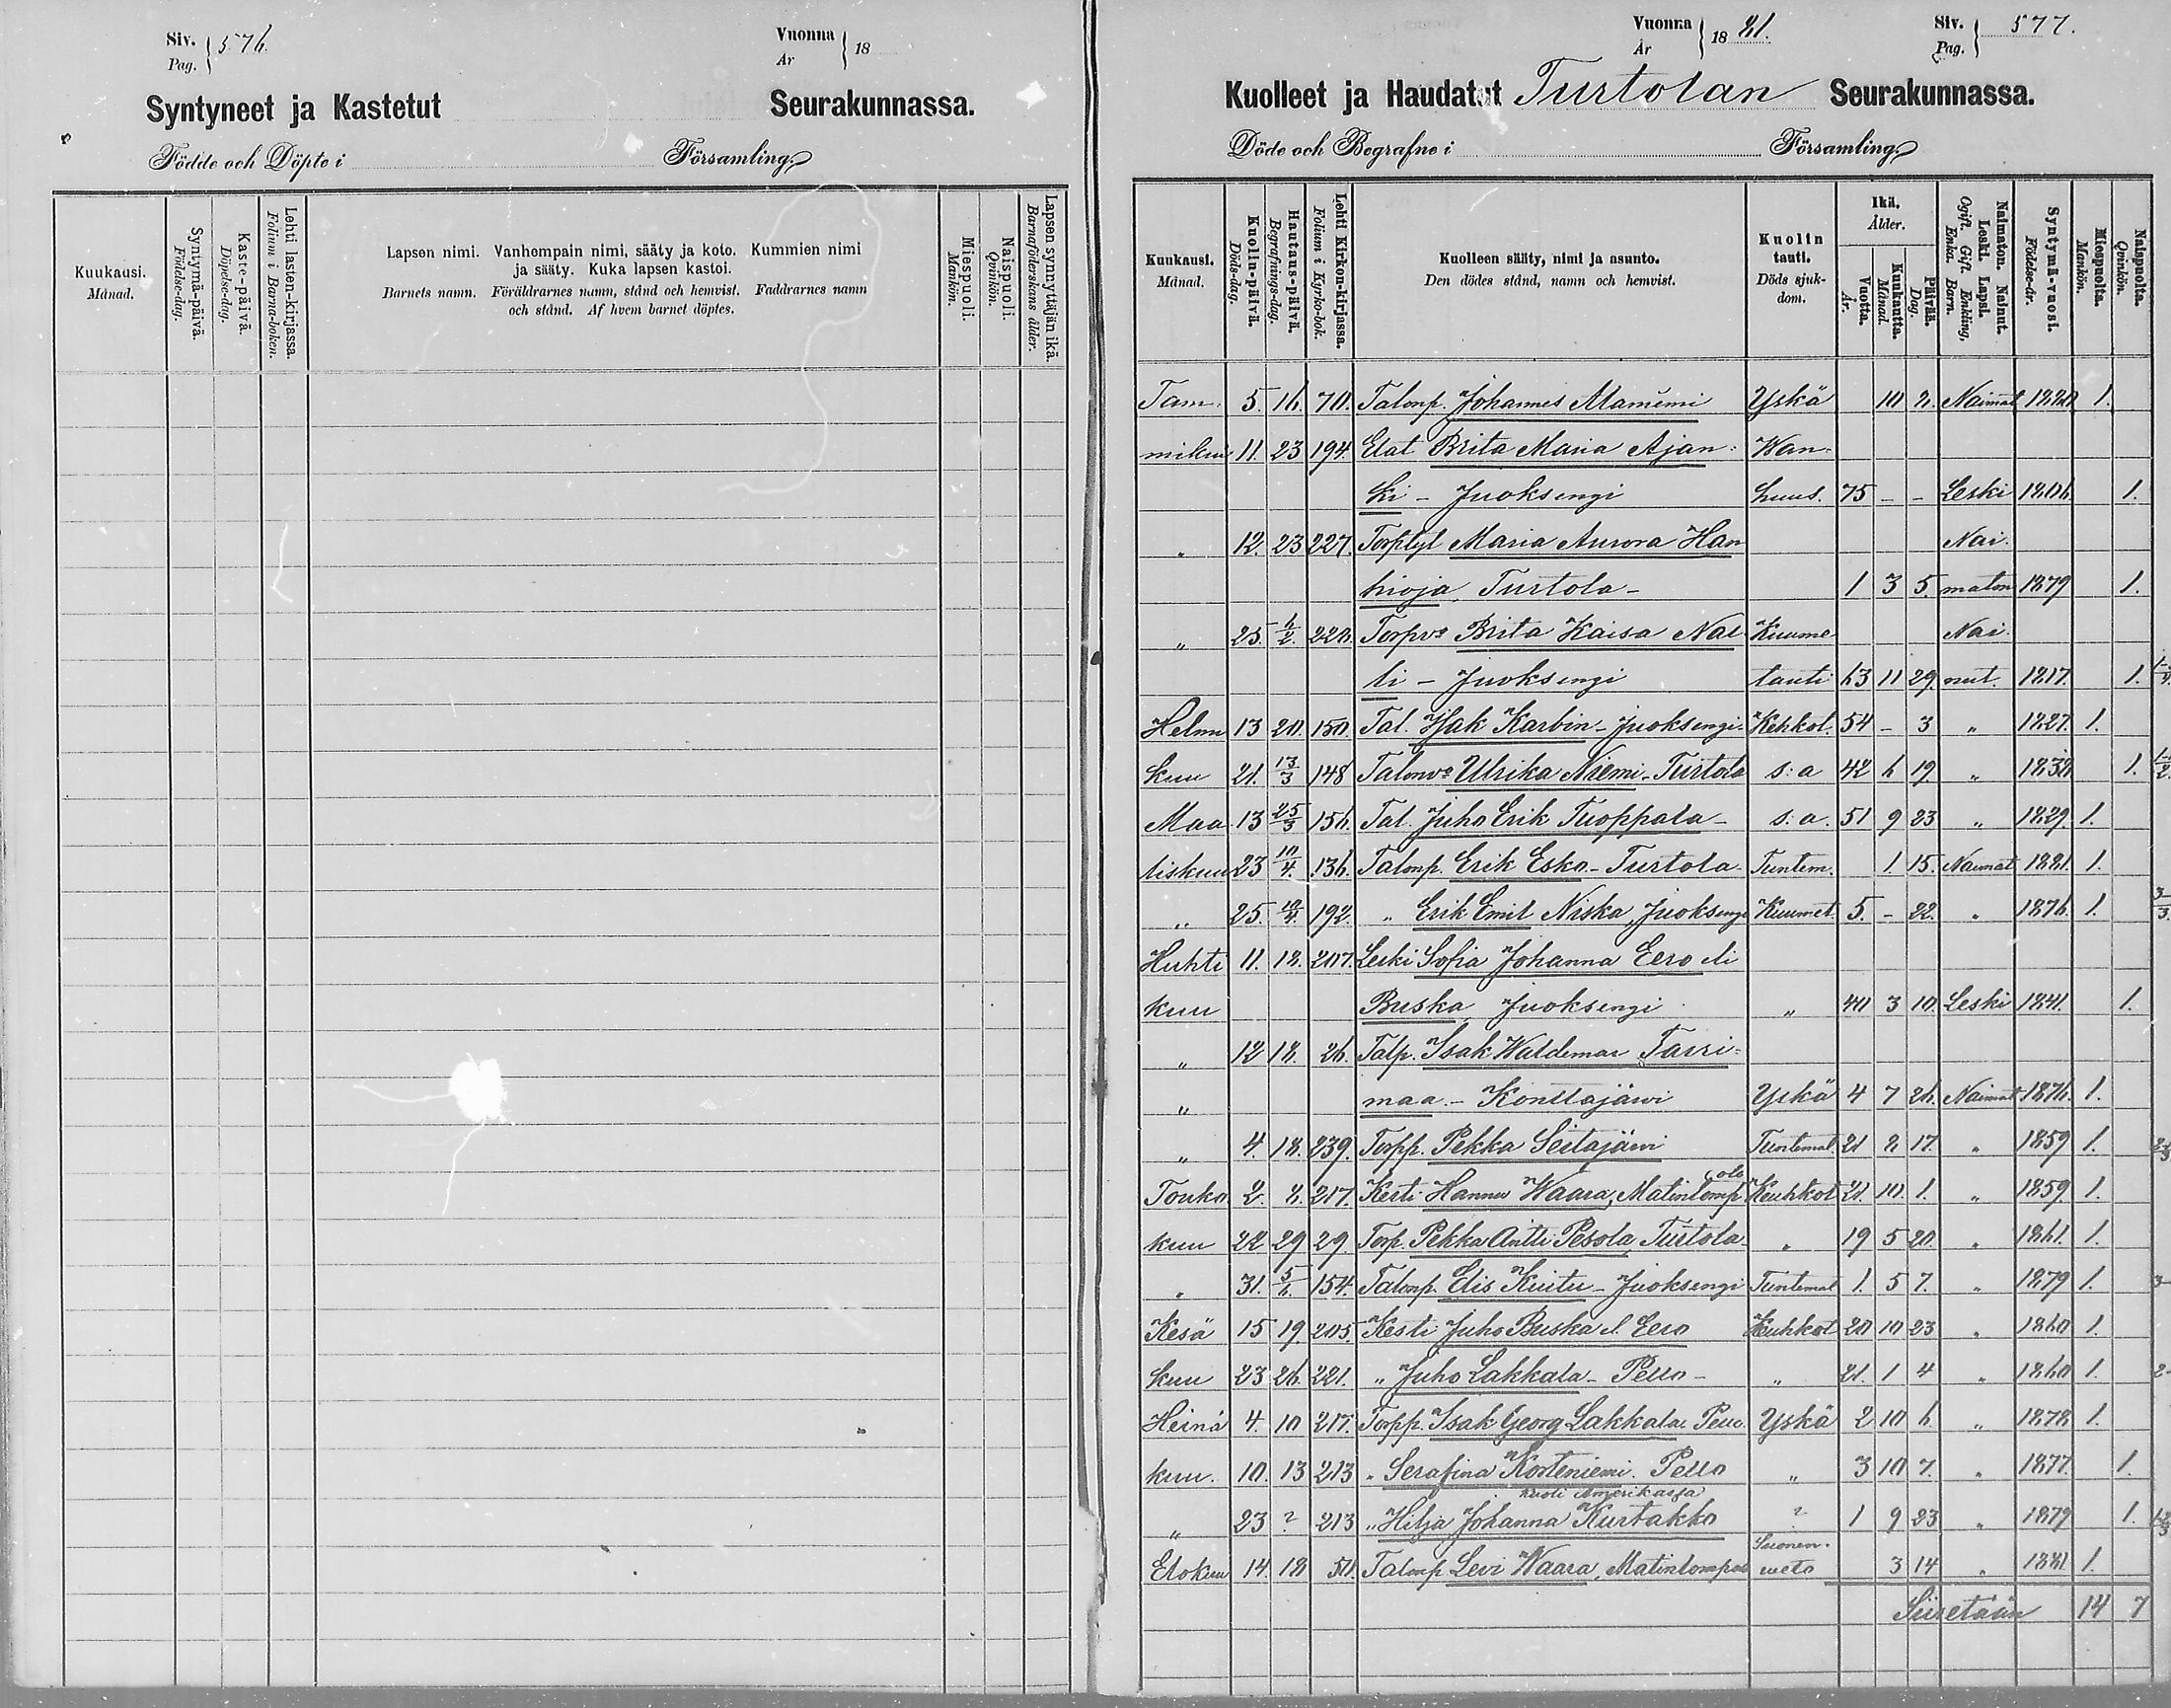 Siv. 576.
Pag.
Vuonna 18
År
Syntyneet ja Kastetut Seurakunnassa.
Födde och Döpte i Församling,
Kuukausi. Månad.
Syntymä-päivä. Födelse-dag.
Kaste-päivä. Döpelse-dag.
Lehti lasten-kirjassa. Folium i Barna-boken.
Lapsen nimi. Vanhempain nimi, sääty ja koto. Kummien nimi
ja sääty. Kuka lapsen kastoi.
Barnets namn. Föräldrarnes namn, stånd och hemvist. Faddrarnes namn
och stånd. Af hvem barnet döptes.
Miespuoli. Mankön.
Naispuoli. Qvinkön.
Lapsen synnyttäjän ikä. Barnaföderskans ålder.
Vuonna 1881.
År
Siv. 577.
Pag.
Kuolleet ja Haudatut Turtolan Seurakunnassa.
Döde och Begrafne i Församling,
Kuukausi. Månad.
Kuolin-päivä. Döds-dag.
Hautaus-päivä. Begrafnings-dag.
Lehti Kirkon-kirjassa. Folium i Kyrko-bok.
Kuolleen sääty, nimi ja asunto.
Den dödes stånd, namn och hemvist.
Kuolin tauti. Döds sjukdom.
Ikä. Ålder.
Vuotta. År.
Kuukautta. Månad.
Päivää. Dag.
Naimaton. Nainut. Leski. Lapsi. Ogift. Gift. Enkling, Enka. Barn.
Syntymä-vuosi. Födelse-år.
Miespuolta. Mankön.
Naispuolta. Qvinkön.
Tam. 5. 16. 70. Talonp. Johannes Alaniemi Yskä 10 2. Naimat 1880 1.
mikuu 11. 23 194. Elat Brita Maria Ajan- Wan-
ki - Juoksengi huus. 75 - - Leski 1806 1.
" 12. 23 227. Torptyt Maria Aurora Han Nai-
hioja, Turtola - 1 3 5. maton 1879 1.
" 25. 6/2. 220. Torpvs Brita Kaisa Nal Kuume Nai-
li - Juoksengi tauti 63 11 29. nut. 1817. 1.
Helmi 13 20. 150. Tal. Isak Karbin - Juoksengi - Kehkot. 54 - 3 " 1827. 1.
kuu 21. 13/3 148 Talonvs Ulrika Niemi - Turtola s:a 42 6 19. " 1838 1.
Maa 13 25/3 156. Tal. Juho Erik Tuoppala - s:a. 51 9 23 " 1829. 1.
liskuu 23 10/4. 136. Talonp. Erik Esko. - Turtola - Tuntem. 1. 15. Naimat 1881. 1.
" 25. 10/4. 192. " Erik Emil Niska, Juoksengi Kuumet. 5. - 22. " 1876. 1.
Huhti 11. 18. 207. Leski Sofia Johanna Eero eli
kuu Buska, Juoksengi " 40 3 10. Leski 1841. 1.
" 12 18. 26. Talp. Isak Waldemar Tarri-
" maa - Konttajärwi Yskä 4 7 26. Naimat 1876. 1.
" 4. 18. 239. Torpp. Pekka Seitajärwi Tuntemat. 21 2 17. " 1859 1.
Touko 2. 8. 217. Kesti Hannu Waara, Matinlompolo Keuhkot 21. 10 1. " 1859 1.
kuu 22 29 29. Torp. Pekka Antti Pesola, Turtola - " 19 5 20. " 1861. 1.
" 31. 5/6. 154. Talonp. Elis Kuitu - Juoksengi Tuntemat 1. 5 7. " 1879 1.
Kesä 15 19. 205. Kesti Juho Buska l. Eero Keuhkot 20 10 23 " 1860 1.
kuu 23 26. 221. " Juho Lakkala - Pello - " 21. 1 4 " 1860 1.
Heinä 4. 10 217. Torpp. Isak Georg Lakkala. Pello. Yskä 2 10 6. " 1878 1.
kuu. 10. 13 213 " Serafina Korteniemi. Pello " 3 10 7. " 1877. 1.
kuoli Amerikassa
" 23 ? 213 " Hilja Johanna Kurtakko ? 1 9 23 " 1879 1.
Elokuu 14. 18 50. Talonp Levi Waara, Matinlompolo Suonen-weto 3 14 " 1881 1.
Siiretään 14 7